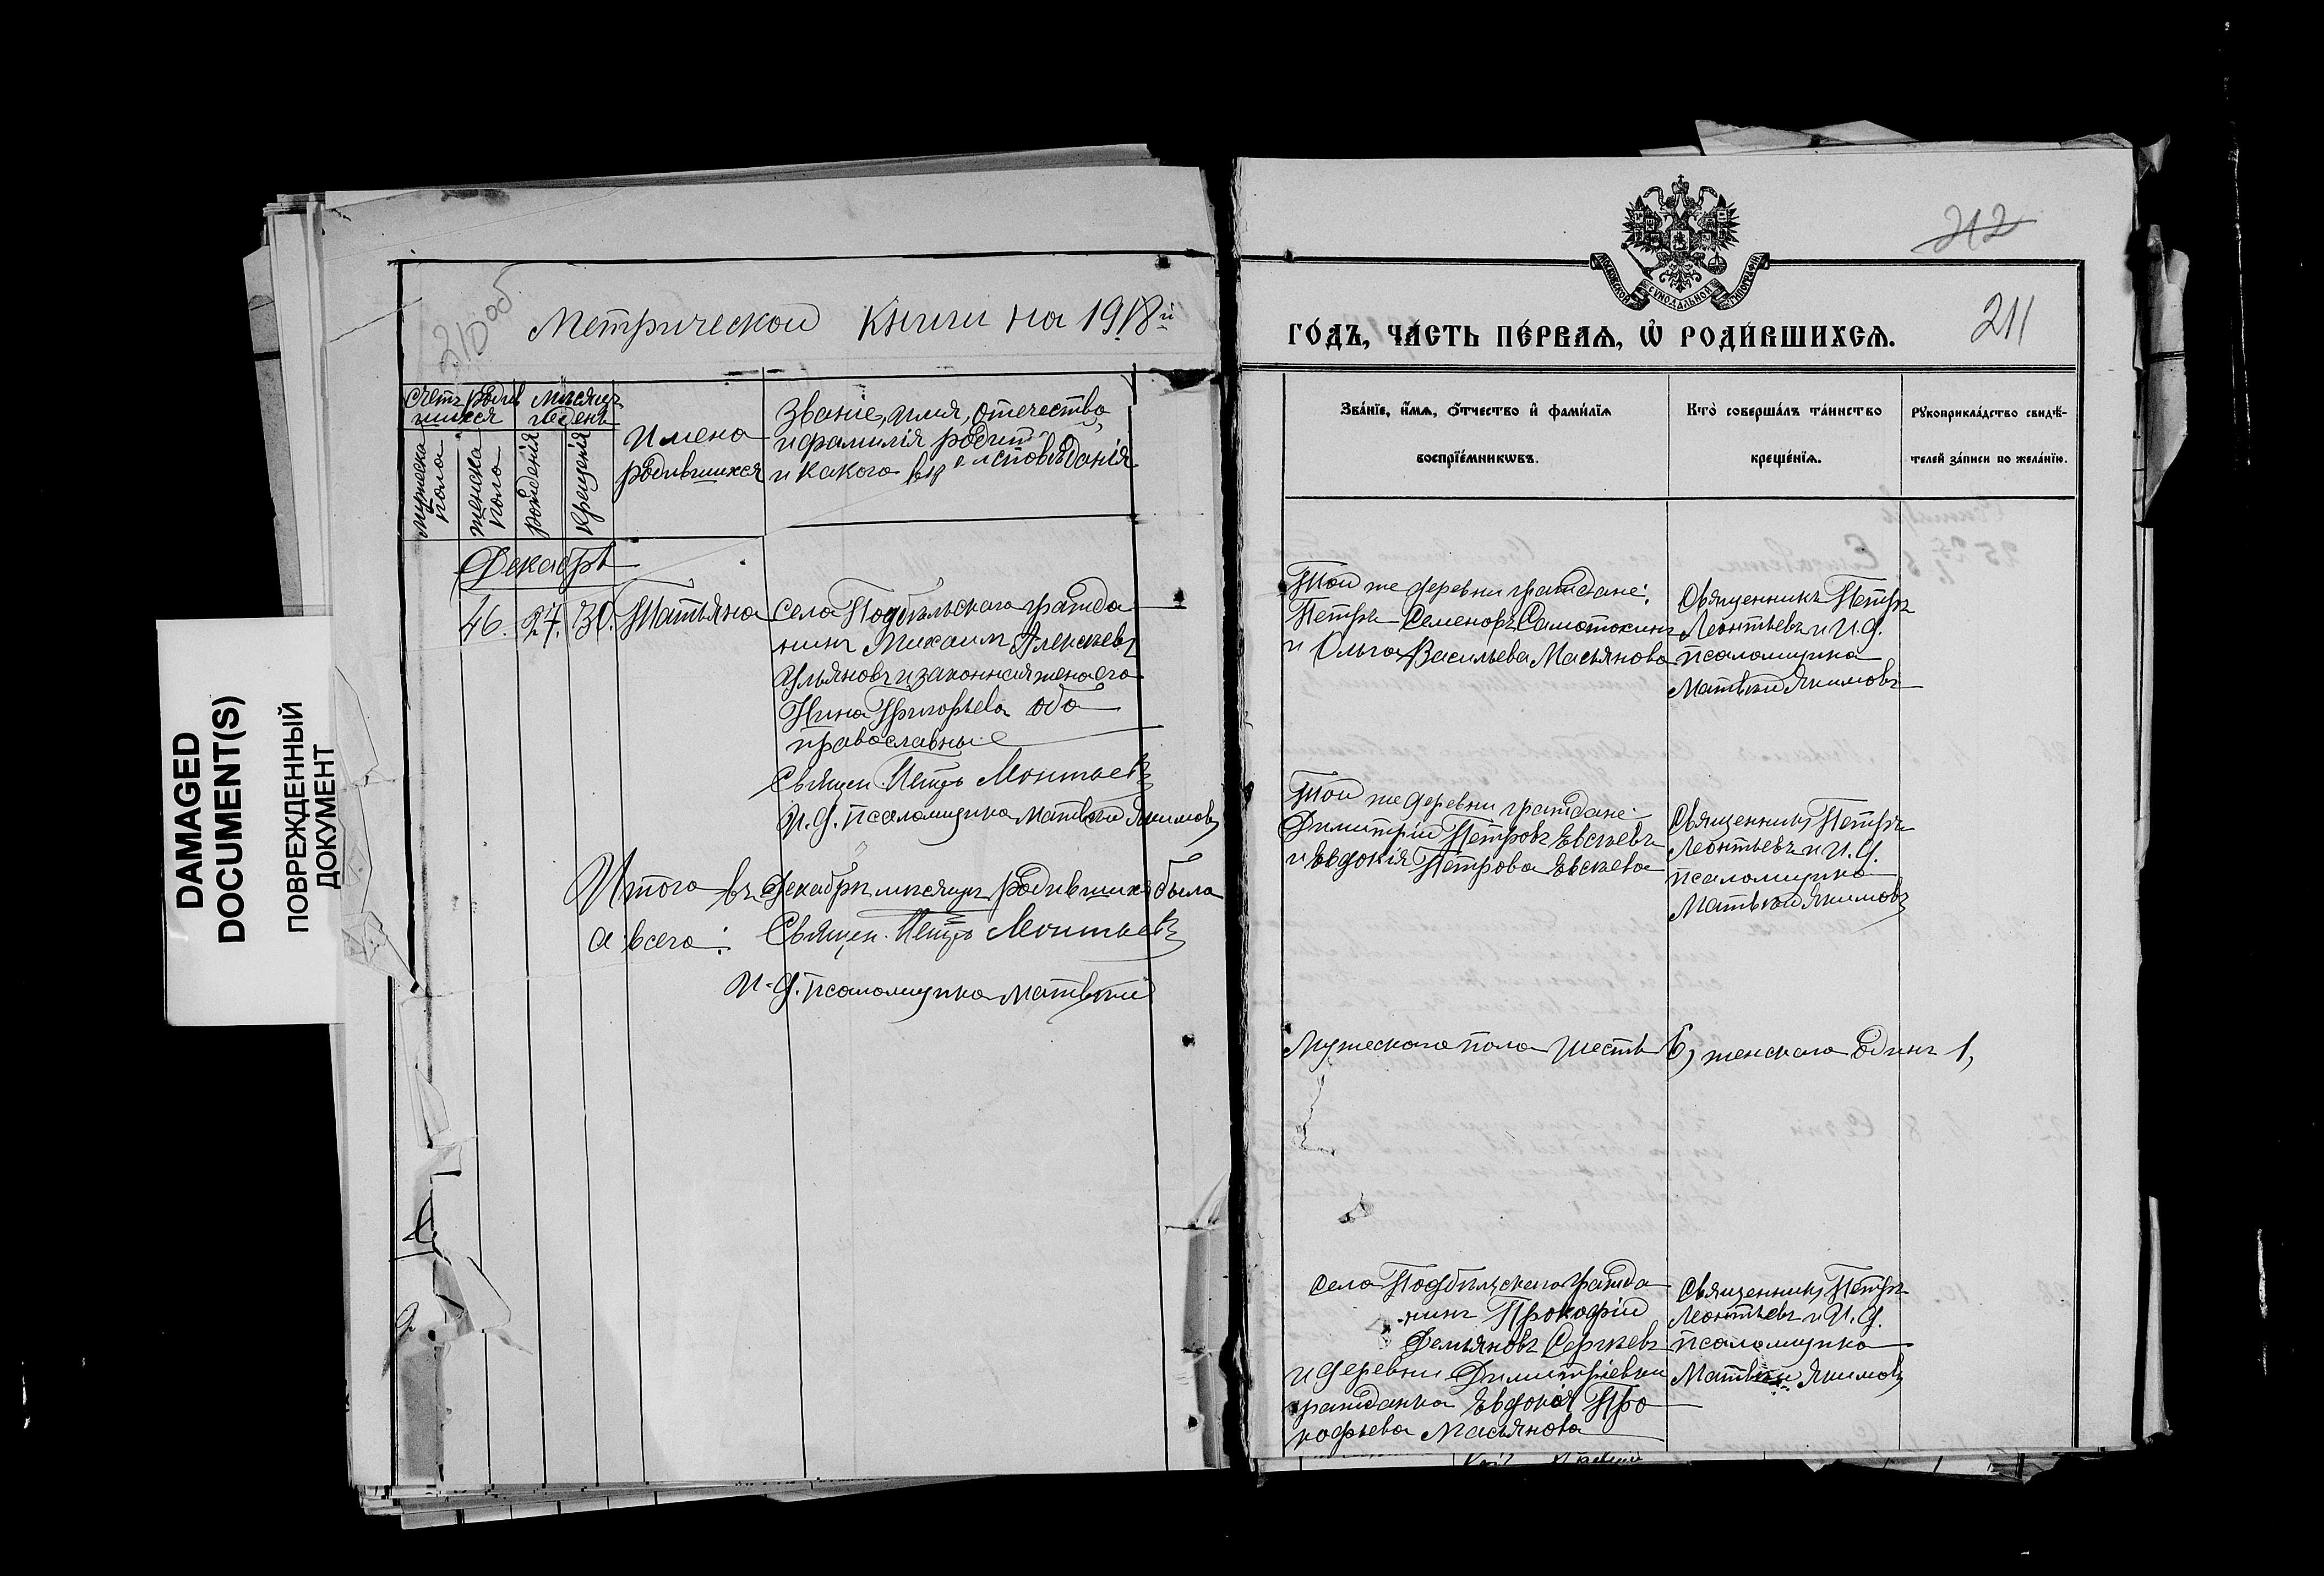 DAMAGED
DOCUMENT(S)
ПОВРЕЖДЕННЫЙ
ДОКУМЕНТ
210 об
Метрической книги на 1918й
Счетъ родив
шихся
Мѣсяцъ
и день
мужеска
пола
женска
пола
рожденія
крещенія
Имена
родившихся
Званіе, имя, отечество
и фамилія родит
и какого вѣр исповѣданія
Декабрь
46. 27. 30. Татьяна
Села Подбѣльскаго гражда
нинъ Михаилъ Алексѣевъ
Ульяновъ и законная жена его
Нина Григорьева оба
православные
Священ. Петръ Леонтьевъ
И. д. псаломщика Матвѣй Якимовъ
Итого въ Декабрѣ мѣсяцѣ родившихся было
а всего:
Священ. Петръ Леонтьевъ
И. д. псаломщика Матвѣй
МОСКОВСКОЙ СѴНОДАЛЬНОЙ ТИПОГРАФІИ
212
211
ГО́ДЪ, ЧА́СТЬ ПЕ́РВАѦ, Ѡ҆ РОДИ́ВШИХСѦ.
Зва́нїе, и҆́мѧ, ѻ҆́тчество и҆ фами́лїѧ
воспрїе́мникѡвъ.
Кто̀ соверша́лъ та́инство
креще́нїѧ.
Рꙋкоприкла́дство свидѣ́-
телей за́писи по жела́нїю.
Той же деревни граждане:
Петръ Семеновъ Самотокинъ
и Ольга Васильева Масьянова
Священникъ Петръ
Леонтьевъ и И. д.
псаломщика
Матвѣй Якимовъ
Той же деревни граждане:
Димитрій Петровъ Евсѣевъ
и Евдокія Петрова Евсѣева
Священникъ Петръ
Леонтьевъ и И. д.
псаломщика
Матвѣй Якимовъ
Мужескаго пола шесть 6, женскаго одинъ 1,
Села Подбѣльскаго гражда
нинъ Прокофій
Демьяновъ Сергѣевъ
и деревни Димитріевки
гражданка Евдокія Про
кофьева Масьянова
Священникъ Петръ
Леонтьевъ и И. д.
псаломщика
Матвѣй Якимовъ